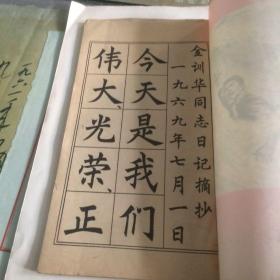 金训华同志日记摘抄
一九六九年七月一日
今天是我们
伟大、光荣、正
一九六二年